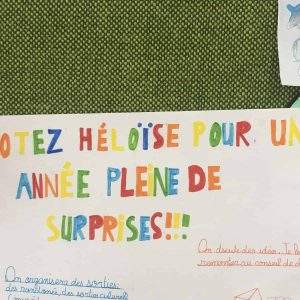 OTEZ HÉLOÏSE POUR UN
ANNÉE PLEINE DE
SURPRISES!!!
On discute des idées. Je
remonterai au conseil de
On organisera des sorties:
des randonnées, des sorties culturels